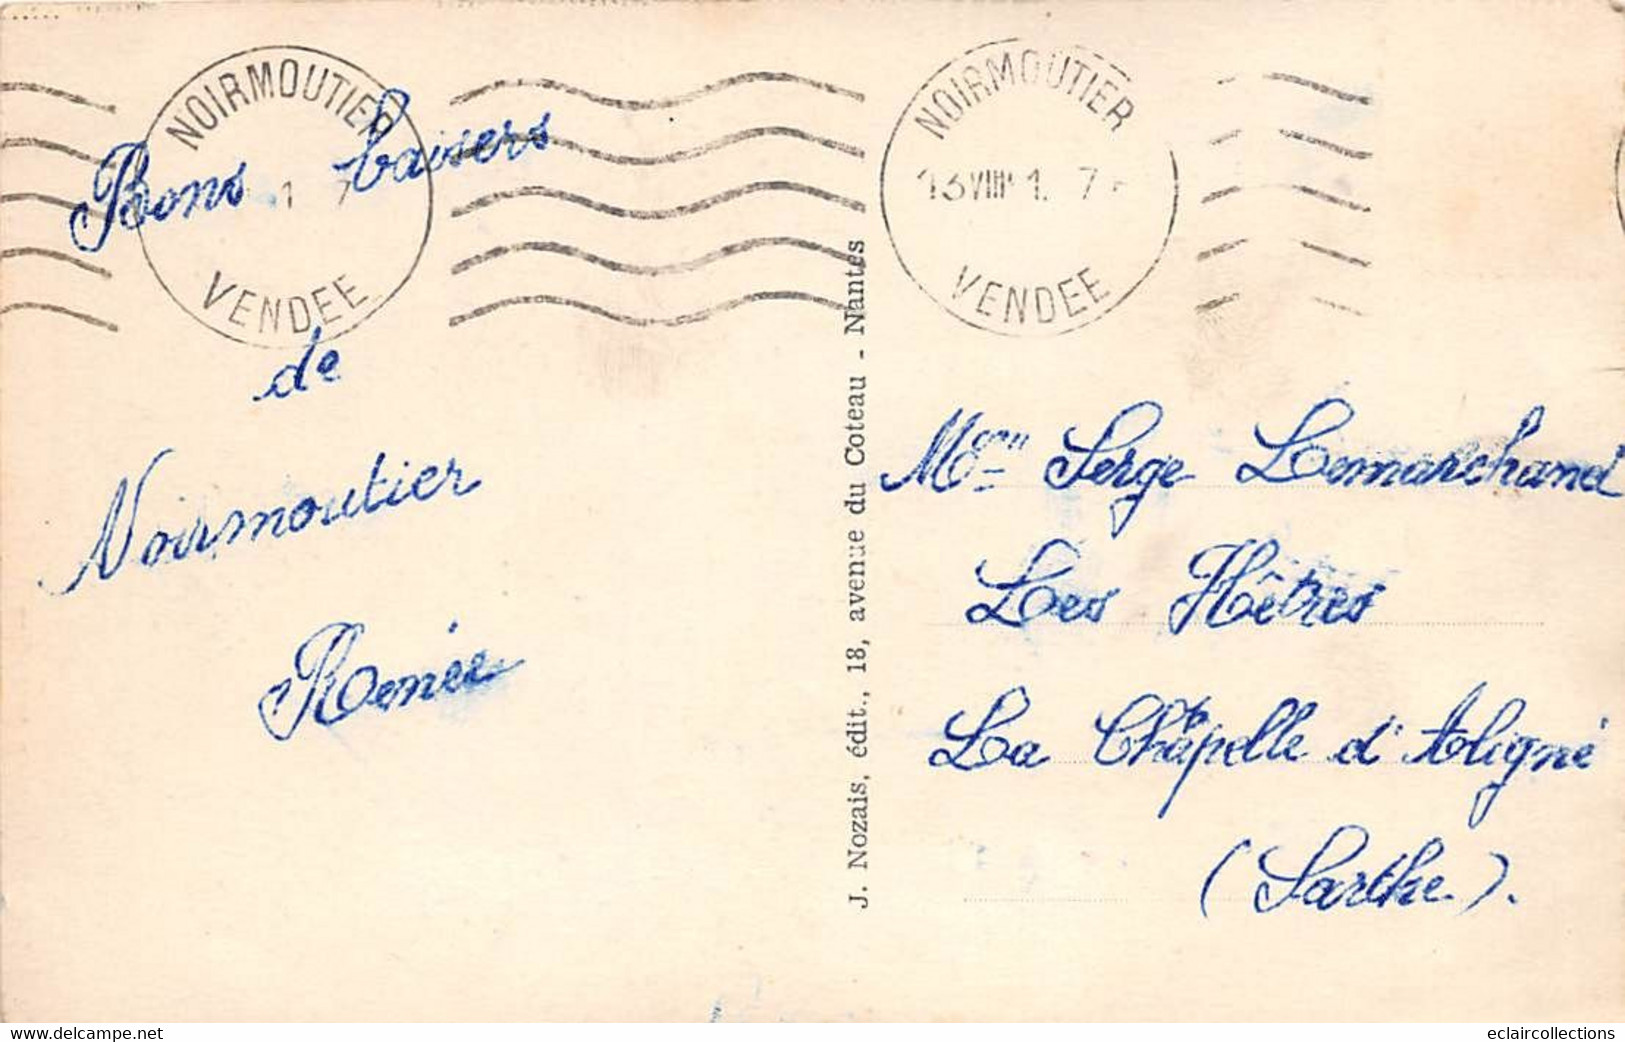 NOIRMOUTIER
VENDEE
NOIRMOUTIER
VENDEE
Bons baisers
de
Noirmoutier
Renée
J. Nozais, édit., 18, avenue du Coteau - Nantes
Serge Lemarchand
Les Hêtres
La Chapelle d'Aligné
(Sarthe).
www.delcampe.net
eclaircollections